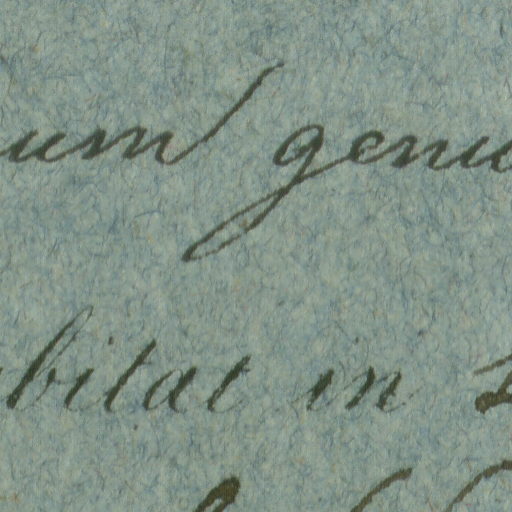 um genu
bitat in